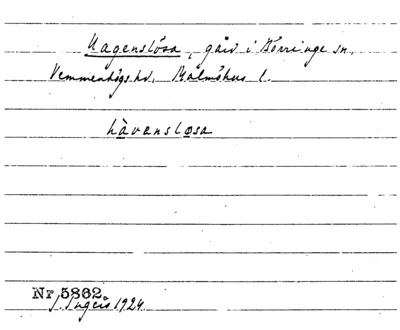 Uagenslösa, gård i Börringe sn.
Vemmenhögs hd. Malmöhus l.
hàvanslosa
Nr 5862
J. Ingers 1924.